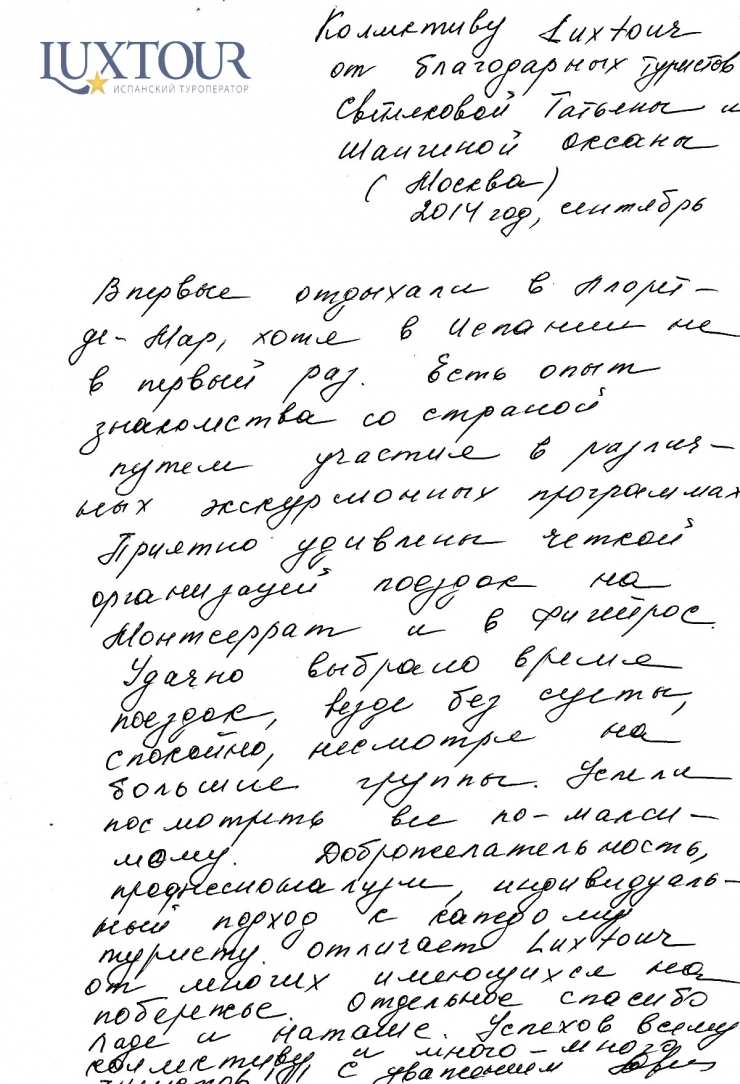 LUXTOUR
ИСПАНСКИЙ ТУРОПЕРАТОР
Коллективу Luxtour
от благодарных туристов
Татьены и
Шангиной Оксаны
(Москва)
2014 год, сентябрь
Впервые отдыхали в Ллорет-
де-Мар, хотя в Испании не
в первый раз. Есть опыт
знакомства со страной
путем участия в различ-
ных экскурсионных программах
Приятно удивлены четкой
организацией поездок на
Монтсеррат и в Фигейрос.
Удачно выбрано время
поездок, везде без суеты,
спокойно, несмотря на
большие группы. Успели
посмотреть все по-макси-
мому. Доброжелательность,
профессионализм, индивидуаль-
ный подход к каждому
туристу отличает Luxtour
от многих имеющихся на
побережье. Отдельное спасибо
Ладе и Наташе. Успехов всему
коллективу и много-много
туристов, С уважением